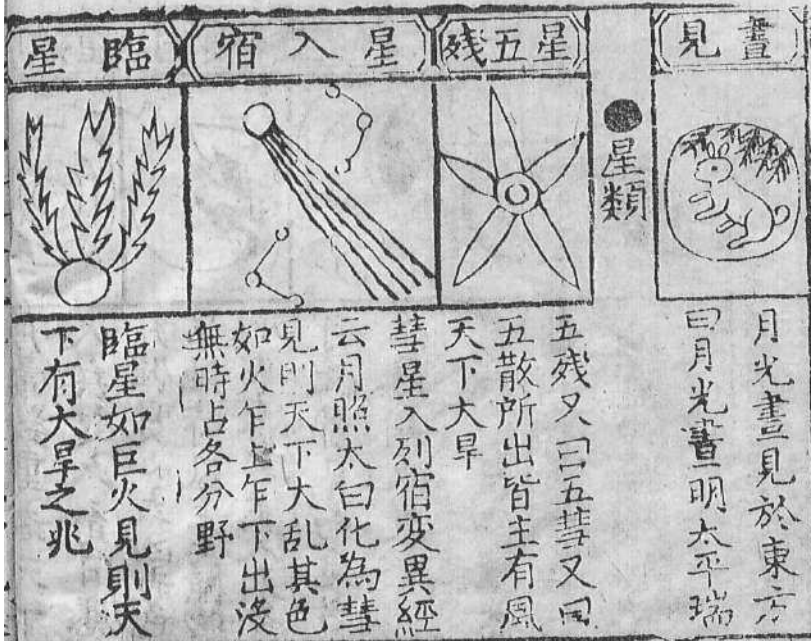 晝見
月光晝見於東方
曰月光晝明太平瑞
●星類
星五殘
五殘又曰五彗又曰
五散所出皆主有風
天下大旱
星入宿
彗星入列宿变異經
云月照太白化為彗
見則天下大乱其色
如火乍上乍下出没
無時占各分野
臨星
臨星如巨火見則天
下有大旱之兆